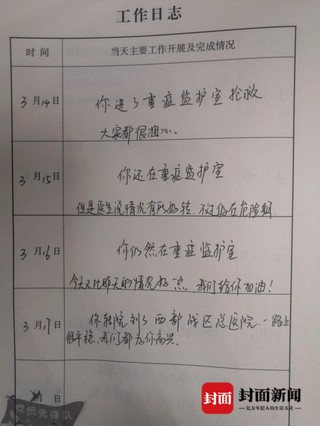 工作日志
时间 当天主要工作开展及完成情况
3月14日
你进了重症监护室抢救
大家都很担心.
3月15日
你还在重症监护室
但是医生说情况有所好转.不过仍在危险期.
3月16日
你仍然在重症监护室
今天又比昨天的情况好一点.我们给你加油！
3月17日
你转院到了西部战区总医院 一路上
很平稳.我们都为你高兴.
月 日
党员先锋队
封面 封面新闻
亿万年轻人的生活方式